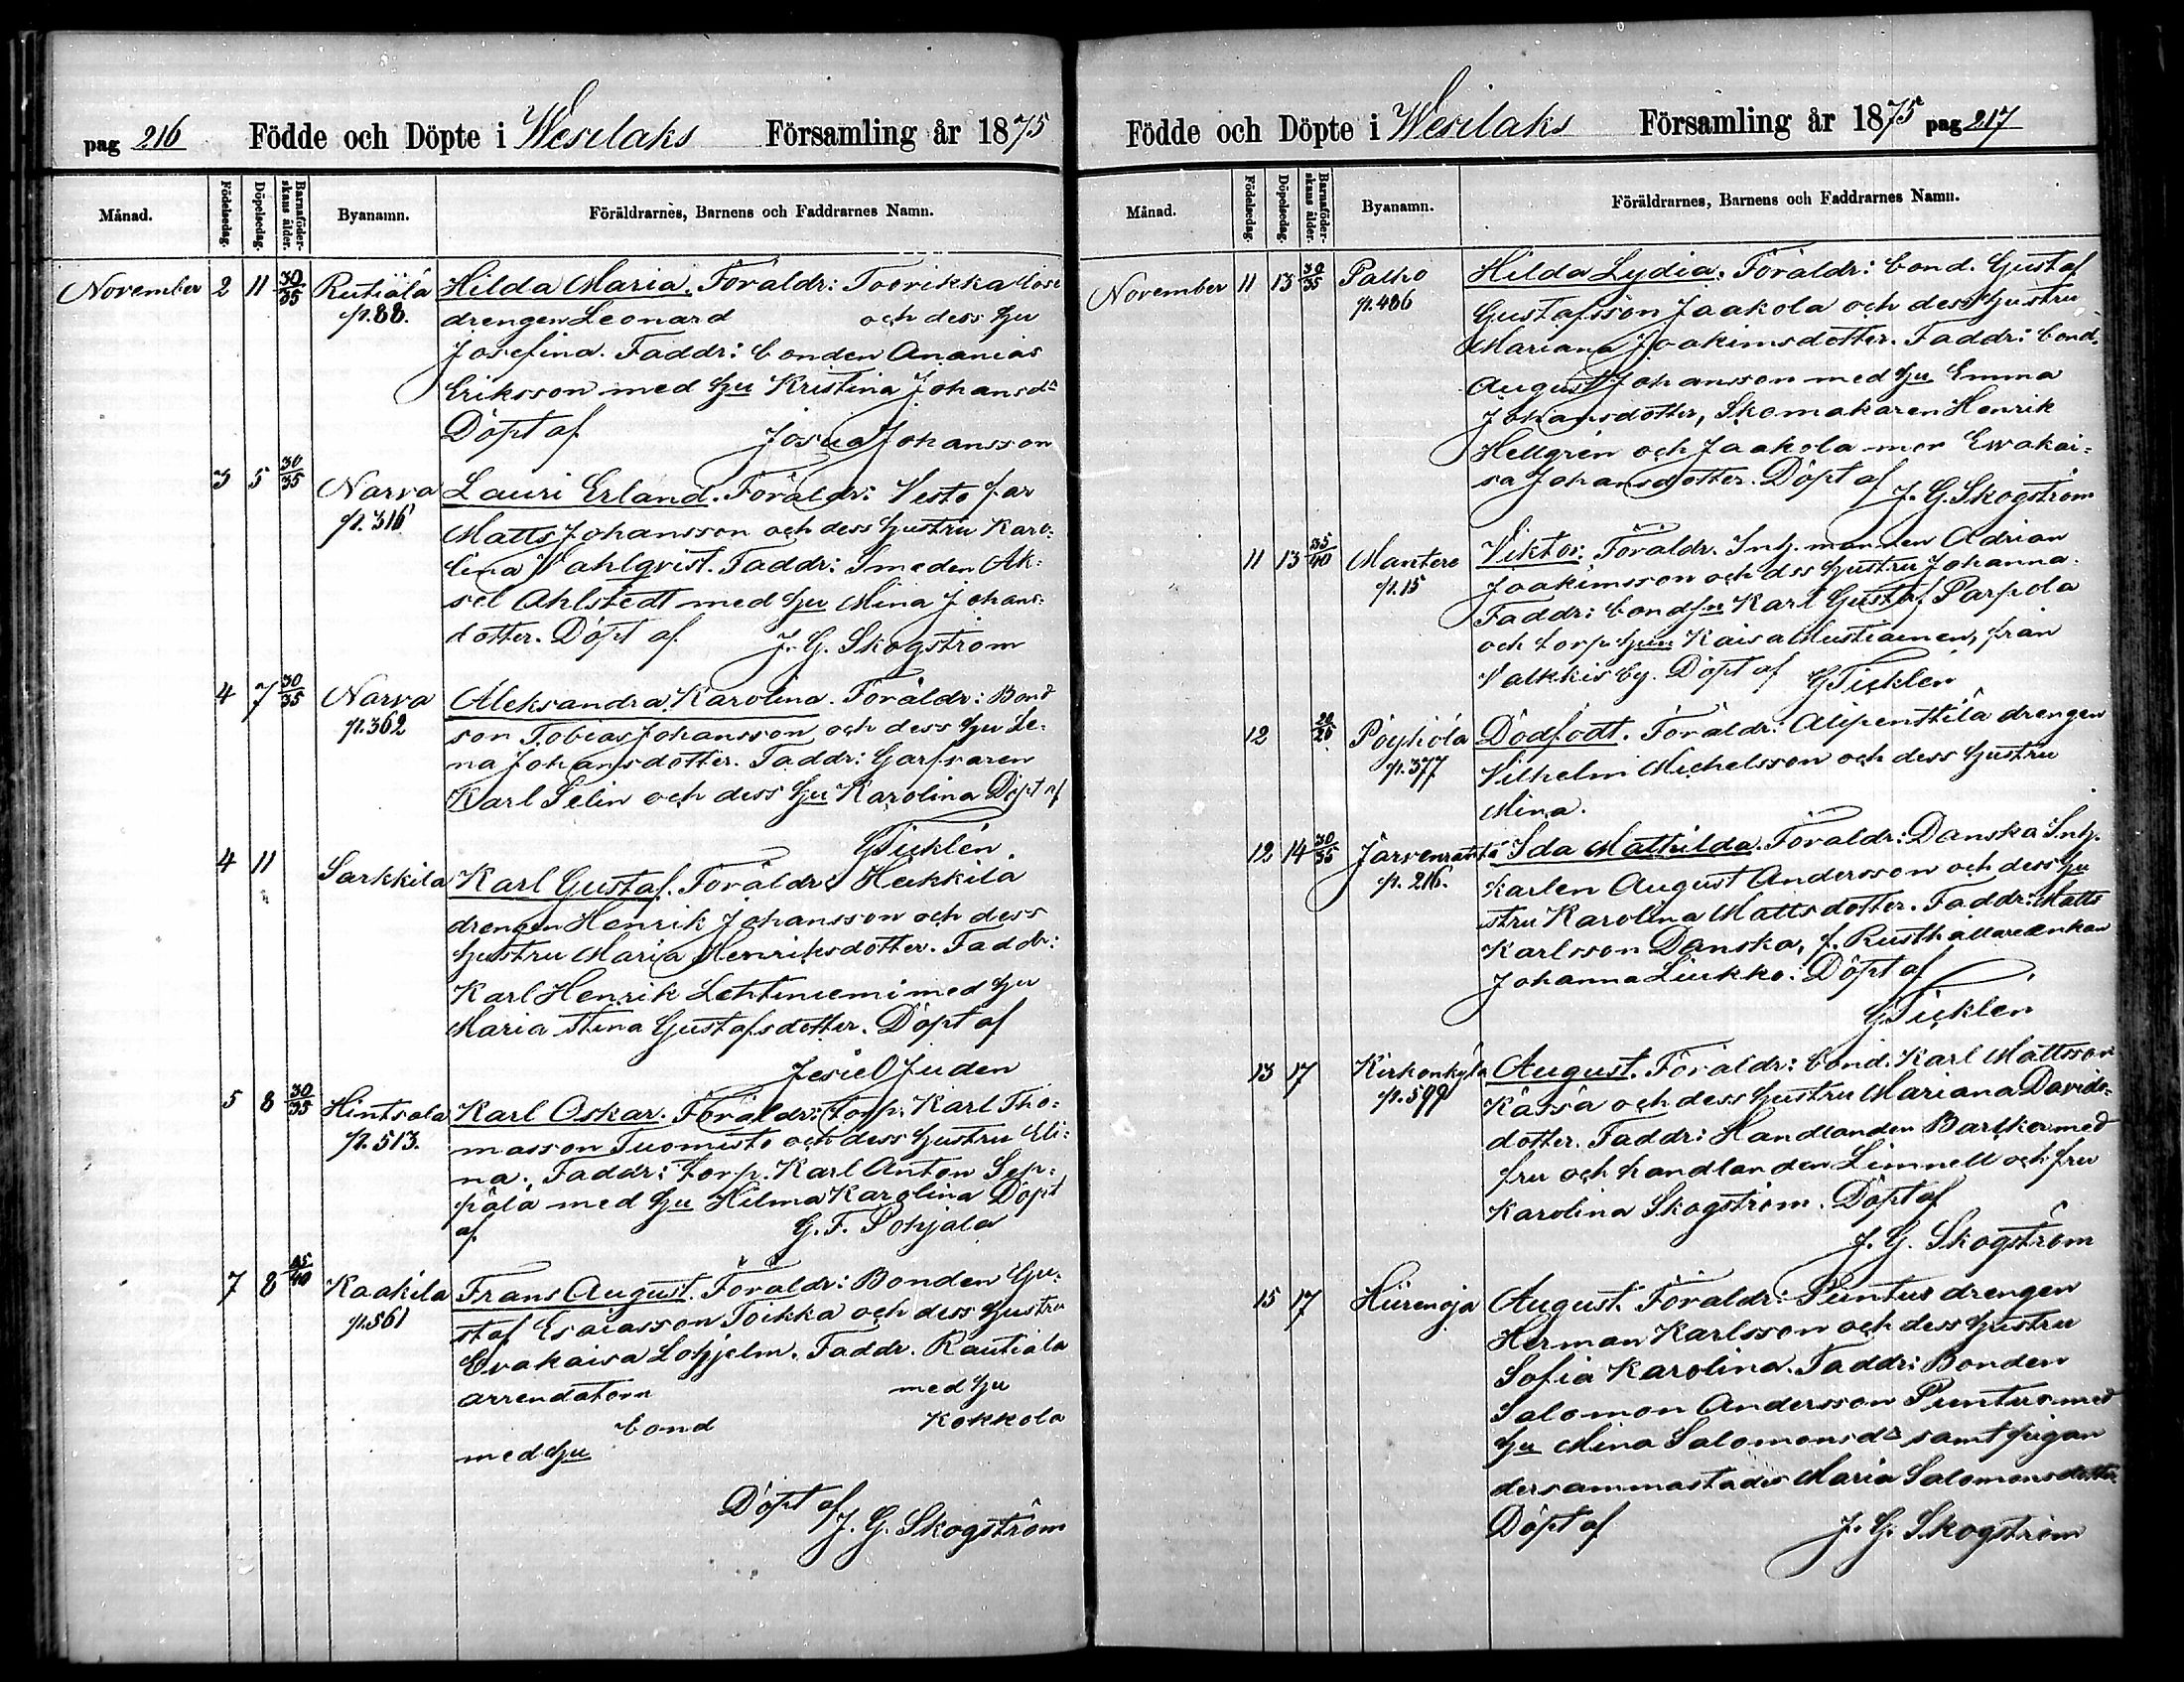 pag 216 Födde och Döpte i Wesilaks Församling år 1875
Månad. Födelsedag. Döpelsedag. Barnaföderskans ålder. Byanamn. Föräldrarnes, Barnens och Faddrarnes Namn.
November 2 11 30/35 Rutiälä Hilda Maria. Föräldr: Toorikka löse
p. 88. drengen Leonard och dess hu
Josefina. Faddr: bonden Ananias
Eriksson med hu Kristina Johansdr
Döpt af Josua Johansson
3 5 30/35 Narva Lauri Erland. Föräldr: Vesto far
p. 316 Matts Johansson och dess hustru Karo-
lina Vahlqvist. Faddr: Smeden Ak-
sel Ahlstedt med hu Mina Johans-
dotter. Döpt af J. G. Skogström
4 7 30/35 Narva Aleksandra Karolina. Föräldr: Bond
p. 362 son Tobias Johansson och dess hu Le-
na Johansdotter. Faddr: Garfvaren
Karl Selin och dess hu Karolina Döpt af
G Ticklén
4 11 Sarkkila Karl Gustaf. Föräldr: Heikkilä
drengen Henrik Johansson och dess
hustru Maria Henriksdotter. Faddr:
Karl Henrik Lehtiniemi med hu
Maria Stina Gustafsdotter. Döpt af
Jesiel Juden
5 8 30/35 Hintsala Karl Oskar. Föräldr: torp. Karl Tho-
p. 513. masson Tuomisto och dess hustru Eli-
na. Faddr: torp. Karl Anton Sep-
pälä med hu Hilma Karolina Döpt
af G. F. Pohjala
7 8 35/40 Kaakila Frans August. Föräldr: Bonden Gu-
p. 561 staf Esaiasson Toikka och dess hustru
Evakaisa Lohjelm. Faddr. Rautiala
arrendatorn med hu
bond Kokkola
med hu
Döpt af J. G. Skogström
Födde och Döpte i Wesilaks Församling år 1875 pag 217
Månad. Födelsedag. Döpelsedag. Barnaföderskans ålder. Byanamn. Föräldrarnes, Barnens och Faddrarnes Namn.
November 11 13 30/35 Palho Hilda Lydia. Föräldr: bond. Gustaf
p. 486 Gustafsson Jaakola och dess hustru
Mariana Joakimsdotter. Faddr: bond.
August Johansson med hu Emma
Johansdotter, Skomakaren Henrik
Hellgrén och Jaakola mor Ewakai-
sa Johansdotter. Döpt af J. G. Skogström
11 13 35/40 Mantere Viktor. Föräldr. Inh. mannen Adrian
p. 15 Joakimsson och dss hustru Johanna.
Faddr: bondsn Karl Gustaf Parpola
och torp. hun Kaisa Mustiainen, från
Valkkis by. Döpt af G Ticklén
12 20/25 Pöyhölä Dödfödt. Föräldr: Alipenttilä drengen
p. 377 Vilhelm Michelsson och dess hustru
Mina.
12 14 30/35 Järvenranta Ida Mathilda. Föräldr: Danska Inh.
p. 216. karlen August Andersson och dess hu
stru Karolina Mattsdotter. Faddr: Matts
Karlsson Danska, f. Rusthållareenkan
Johanna Liukko. Döpt af
G Ticklén
13 17 Kirkonkylä August. Föräldr: bond. Karl Mattsson
p. 599 Kässä och dess hustru Mariana Davids-
dotter. Faddr: Handlanden Barlker med
fru och handlanden Limnell och fru
Karolina Skogström. Döpt af
J. G. Skogström
15 17 Hiirenoja August. Föräldr: Puntus drengen
Herman Karlsson och dess hustru
Sofia Karolina. Faddr: Bonden
Salomon Andersson Puntus med
hu Mina Salomonsdr samt pigan
dersammastädes Maria Salomonsdotter
Döpt af J. G. Skogström